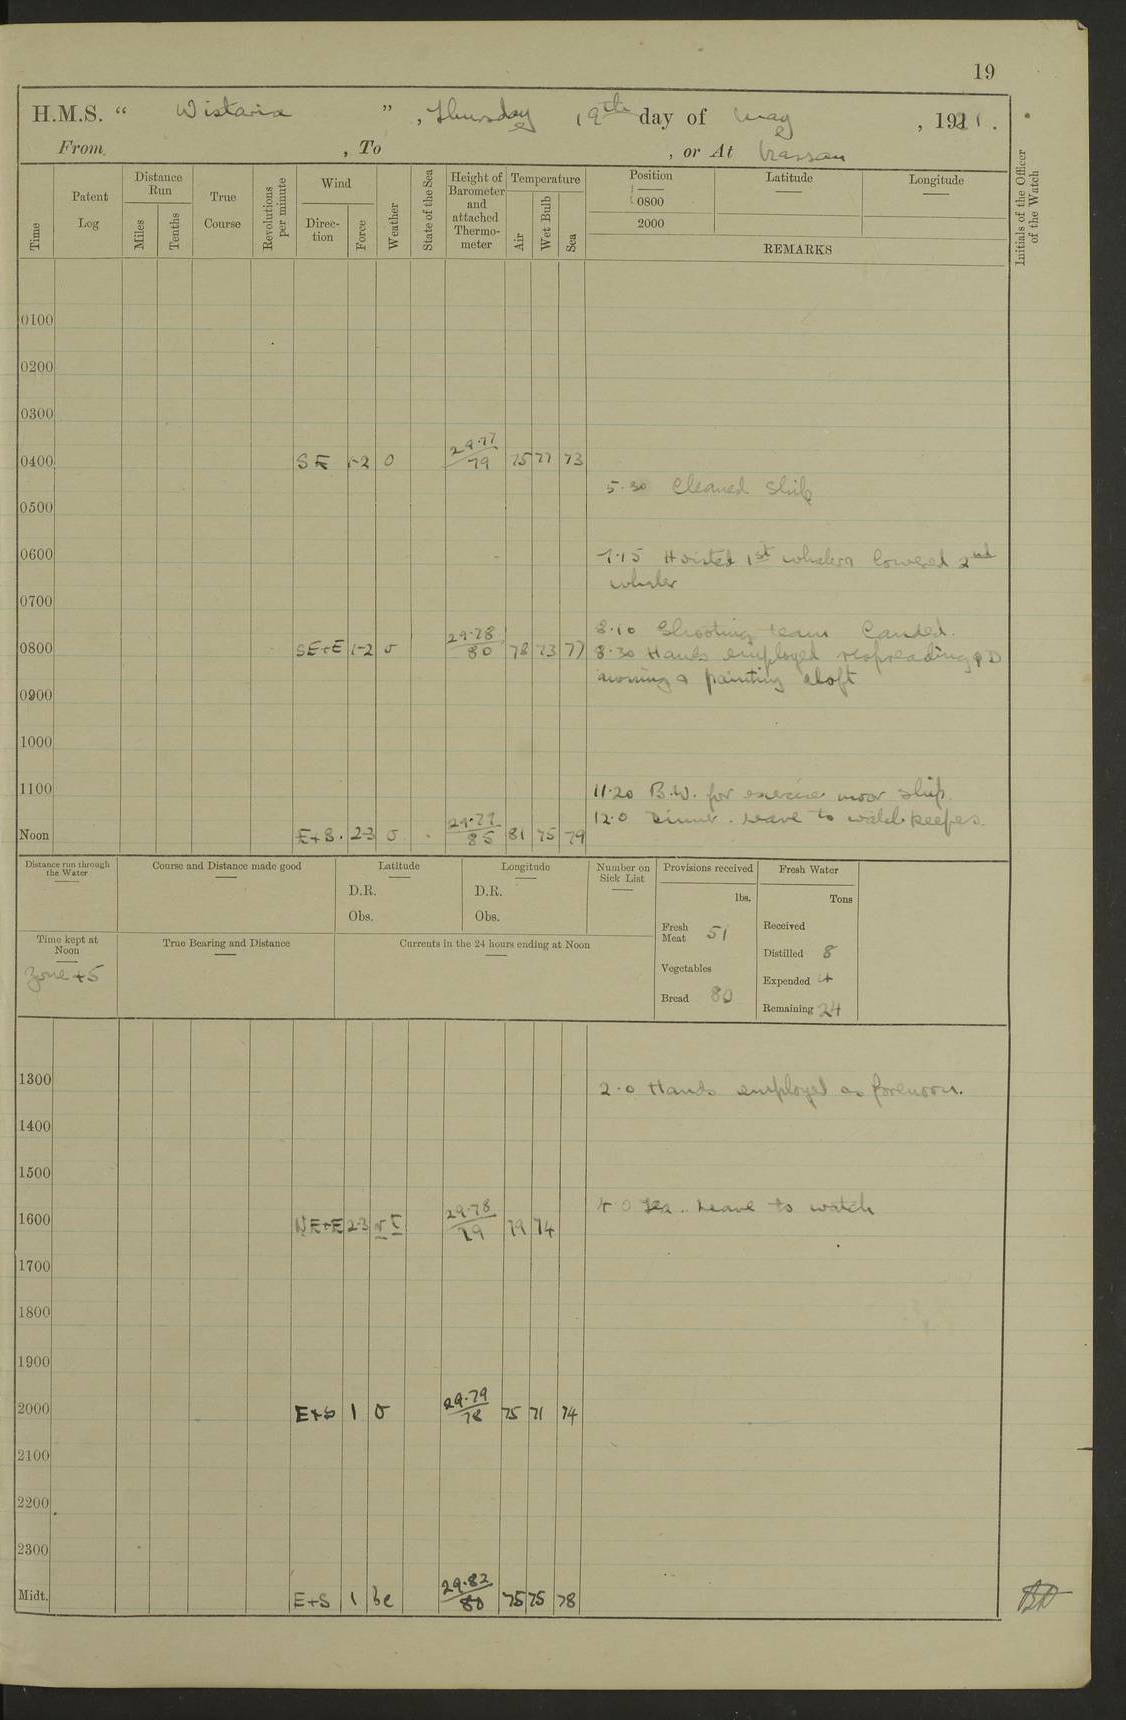 19
H.M.S. “ Wistaria ” , Thursday 19th day of May , 1921.
From , To , or At Nassau
Time
Patent Log
Distance Run
Miles
Tenths
True Course
Revolutions per minute
Wind
Direction
Force
Weather
State of the Sea
Height of Barometer and attached Thermometer
Temperature
Air
Wet Bulb
Sea
Position
0800
2000
Latitude
Longitude
REMARKS
Initials of the Officer of the Watch
0100
0200
0300
0400 SE 1-2 0 29.77 79 75 77 73
5.30 Cleaned Ship
0500
0600
7.15 Hoisted 1st whaler lowered 2nd
whaler
0700
8.10 Shooting team landed.
0800 SE+E 1-2 0 29.78 80 78 73 77 8.30 Hands employed respreading QD
awning & painting aloft
0900
1000
1100 11.20 B.W. for exercise moor ship
12.0 Dinner. Leave to watch keepers
Noon E+S. 2-3 0 29.79 85 81 75 79
Distance run through the Water
Course and Distance made good
Latitude
D.R.
Obs.
Longitude
D.R.
Obs.
Number on Sick List
Provisions received
lbs.
Fresh Meat 51
Vegetables
Bread 80
Fresh Water
Tons
Received
Distilled 8
Expended 4
Remaining 24
Time kept at Noon
Zone +5
True Bearing and Distance
Currents in the 24 hours ending at Noon
1300 2.0 Hands employed as forenoon.
1400
1500
4.0 Tea. Leave to watch
1600 NE+E 2-3 29.78 79 79 74
1700
1800
1900
2000 E+S 1 0 29.79 78 75 71 74
2100
2200
2300
Midt. E+S 1 bc 29.82 80 75 75 78